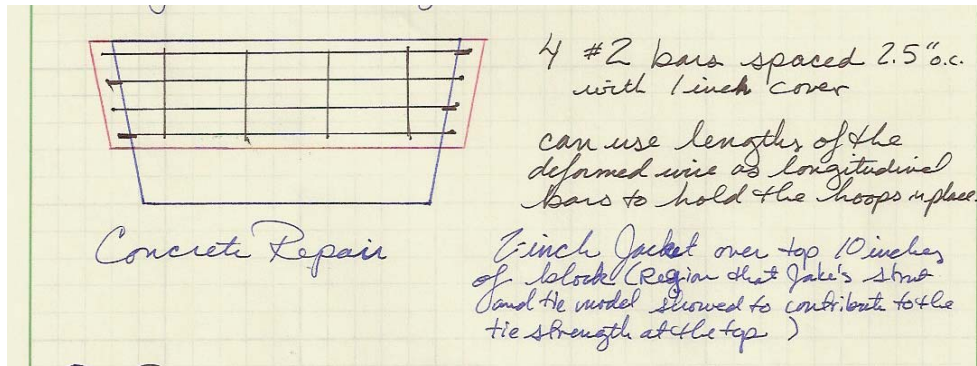 4 #2 bars spaced 2.5" o.c.
with 1 inch cover
can use lengths of the
deformed wire as longitudinal
bars to hold the hoops in place.
Concrete Repair
2-inch Jacket over top 10 inches
of block (Region that Jake's strut
and tie model showed to contribute to the
tie strength at the top)